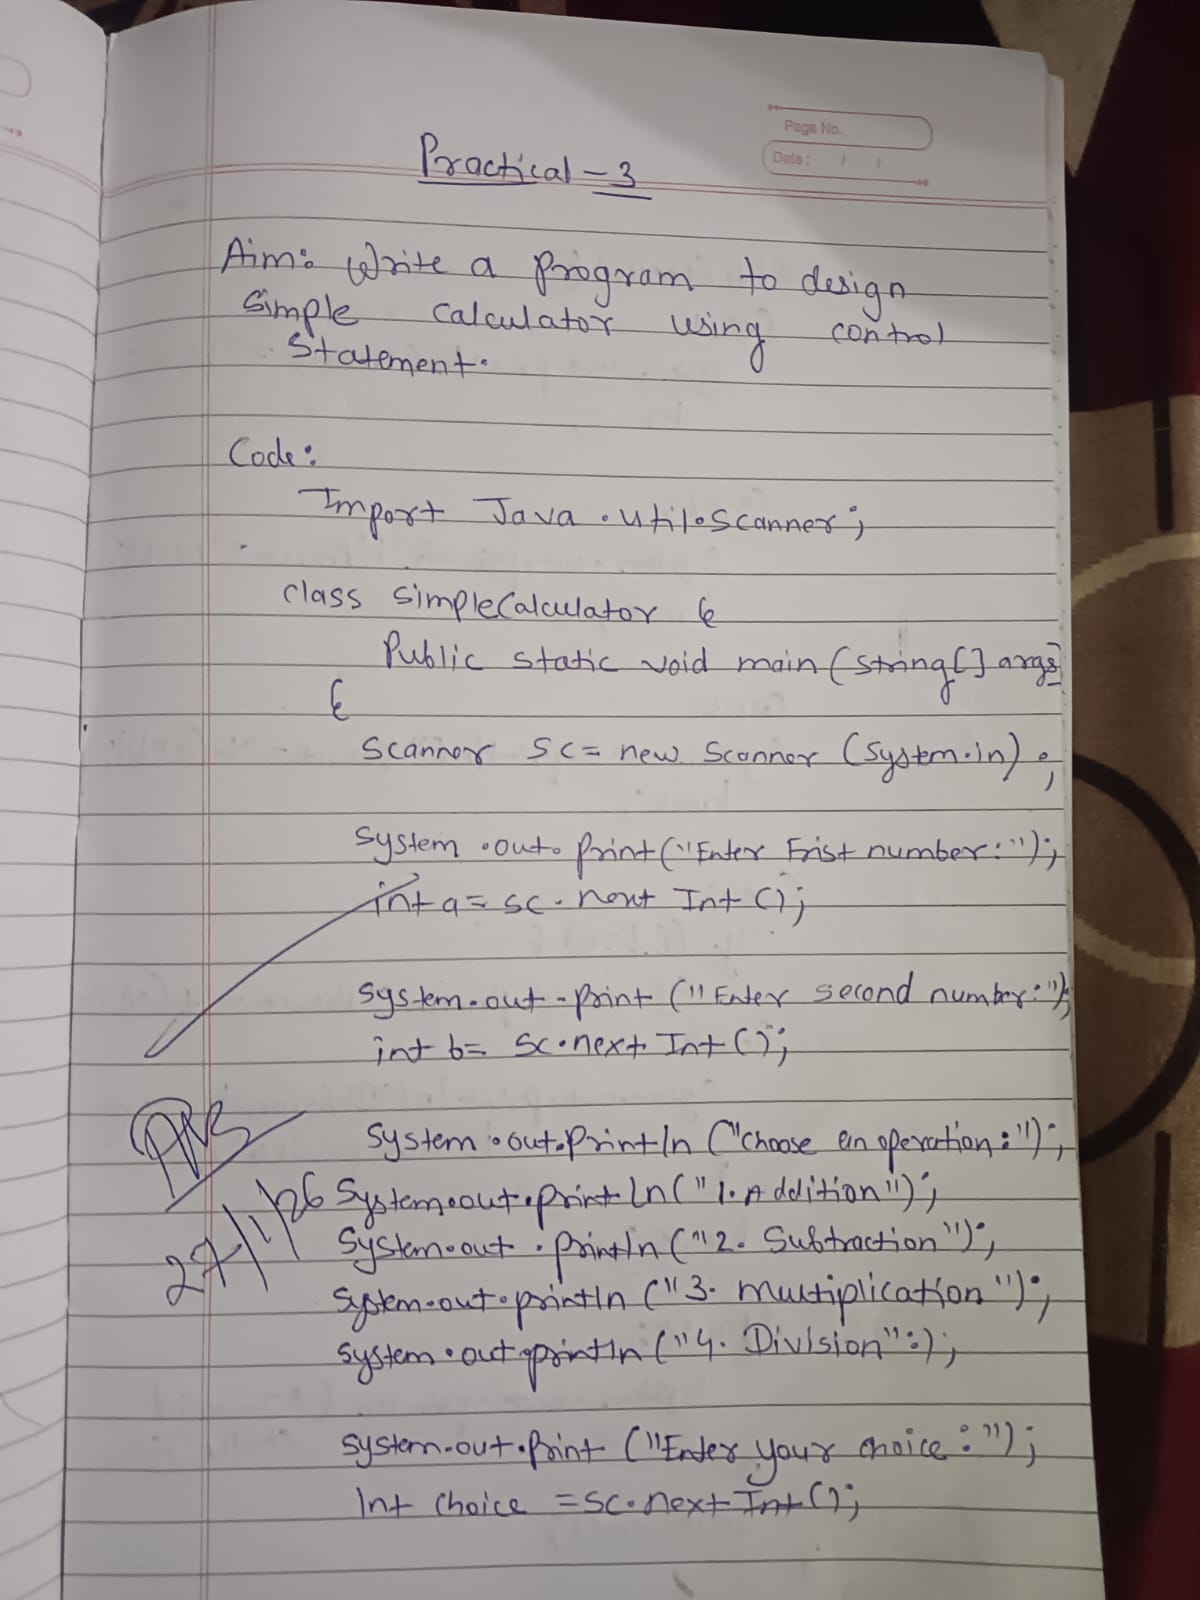 Page No.
Date: / /
Practical - 3
Aim: Write a program to design
simple calculator using control
Statement.
Code:
Import Java.util.scanner;
class simpleCalculator {
Public static void main (string[] args)
{
Scanner sc = new Scanner (System.in);
System.out.print("Enter Frist number:");
int a = sc.next Int ();
System.out.print ("Enter second number:");
int b = sc.next Int ();
System.out.println ("choose an operation:");
System.out.println (" 1. Addition");
System.out.println ("2. Subtraction");
System.out.println ("3. multiplication");
System.out.println ("4. Division":);
27/1/26
System.out.print ("Enter your choice:");
Int choice = sc.next Int ();